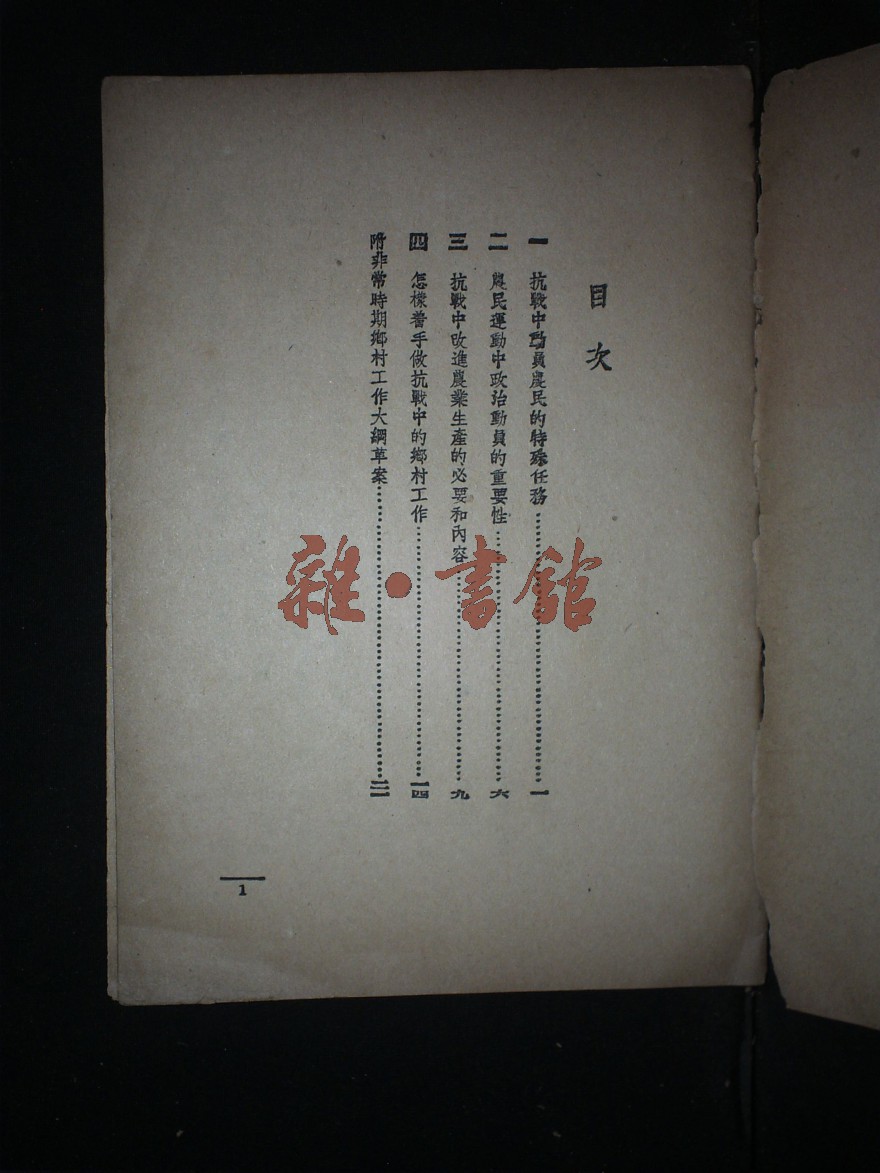 目次
一 抗戰中動員農民的特殊任務……一
二 農民運動中政治動員的重要性……六
三 抗戰中改進農業生產的必要和內容……九
四 怎樣着手做抗戰中的鄉村工作……一四
附非常時期鄉村工作大綱草案……二一
1
雜·書館